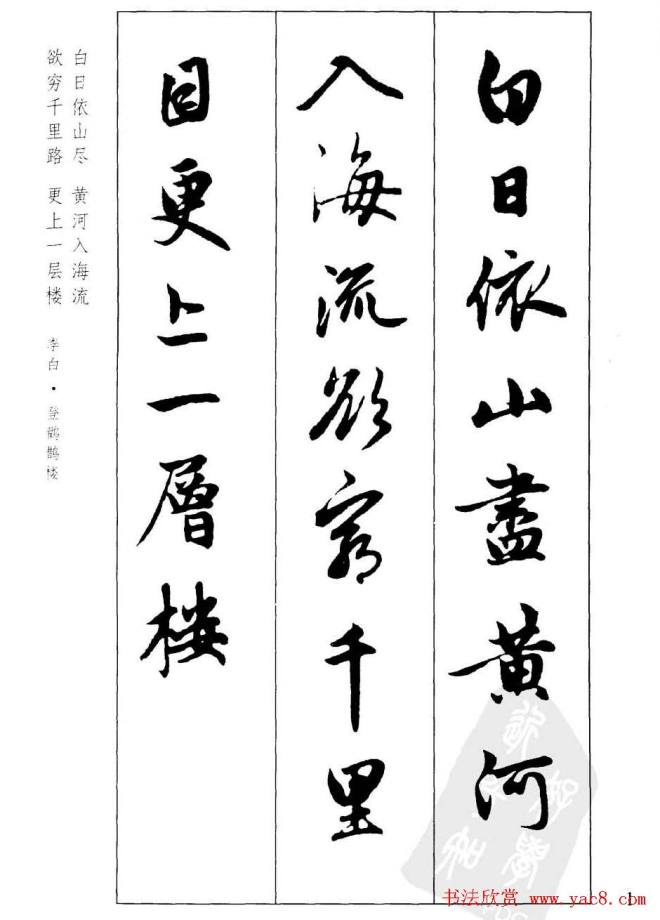 白日依山盡黄河
入海流欲窮千里
目更上一層楼
白日依山尽 黄河入海流
欲穷千里路 更上一层楼 李白·登鹳鹊楼
1
书法欣赏 www.yac8.com